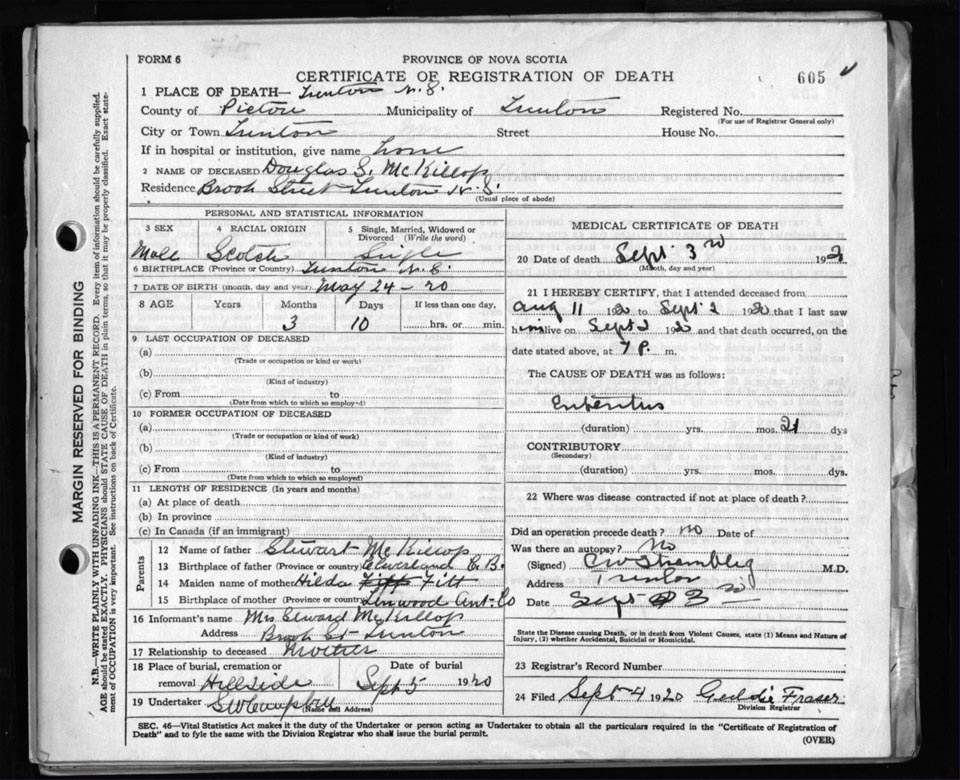 FORM 6
PROVINCE OF NOVA SCOTIA
CERTIFICATE OF REGISTRATION OF DEATH
605
1 PLACE OF DEATH— Trenton N.S.
County of Pictou Municipality of Trenton Registered No.
(For use of Registrar General only)
City or Town Trenton Street House No.
If in hospital or institution, give name home
2 NAME OF DECEASED Douglas S. McKillop
Residence Brook Street Trenton N.S.
(Usual place of abode)
PERSONAL AND STATISTICAL INFORMATION
3 SEX 4 RACIAL ORIGIN 5 Single, Married, Widowed or Divorced (Write the word)
Male Scotch Single
6 BIRTHPLACE (Province or Country) Trenton N.S.
7 DATE OF BIRTH (month, day and year) May 24-20
8 AGE Years Months Days If less than one day,
3 10 hrs. or min.
9 LAST OCCUPATION OF DECEASED
(a)
(Trade or occupation or kind or work)
(b)
(Kind of industry)
(c) From to
(Date from which to which so employed)
10 FORMER OCCUPATION OF DECEASED
(a)
(Trade or occupation or kind of work)
(b)
(Kind of industry)
(c) From to
(Date from which to which so employed)
11 LENGTH OF RESIDENCE (In years and months)
(a) At place of death
(b) In province
(c) In Canada (if an immigrant)
Parents
12 Name of father Stewart McKillop
13 Birthplace of father (Province or country) C.B.
14 Maiden name of mother Hilda Fitt Fitt
15 Birthplace of mother (Province or country) Linwood Ant. Co
16 Informant's name Mrs McKillop
Address Brook St Trenton
17 Relationship to deceased Mother
18 Place of burial, cremation or removal Hillside Date of burial Sept 5 1920
19 Undertaker S W Campbell
(Name and Address)
MEDICAL CERTIFICATE OF DEATH
20 Date of death Sept 3rd 192
(Month, day and year)
21 I HEREBY CERTIFY, that I attended deceased from
Aug 11 1920 to Sept 2 1920 that I last saw
him alive on Sept 2 1920 and that death occurred, on the
date stated above, at 7 P. m.
The CAUSE OF DEATH was as follows:
Enteritus
(duration) yrs. mos. 21 dys
CONTRIBUTORY
(Secondary)
(duration) yrs. mos. dys.
22 Where was disease contracted if not at place of death?
Did an operation precede death? no Date of
Was there an autopsy? No
(Signed) M.D.
Address Trenton
Date Sept 3
State the Disease causing Death, or in death from Violent Causes, state (1) Means and Nature of Injury, (2) whether Accidental, Suicidal or Homicidal.
23 Registrar's Record Number
24 Filed Sept 4 1920 Geddie Fraser
Division Registrar
SEC. 46—Vital Statistics Act makes it the duty of the Undertaker or person acting as Undertaker to obtain all the particulars required in the "Certificate of Registration of
Death" and to fyle the same with the Division Registrar who shall issue the burial permit.
(OVER)
MARGIN RESERVED FOR BINDING
N.B.—WRITE PLAINLY WITH UNFADING INK—THIS IS A PERMANENT RECORD. Every item of information should be carefully supplied.
AGE should be stated EXACTLY. PHYSICIANS should STATE CAUSE OF DEATH in plain terms, so that it may be properly classified. Exact statement of OCCUPATION is very important. See instructions on back of Certificate.